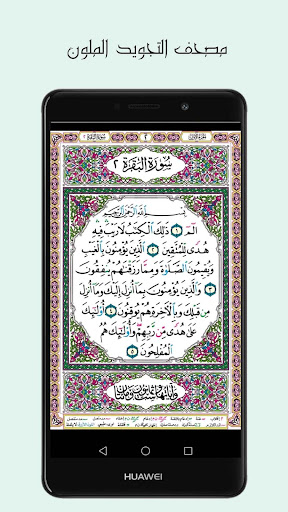 مصحف التجويد الملون
٢
سُورَةُ الْبَقَرَة ٢
بِسْمِ ٱللَّهِ ٱلرَّحْمَٰنِ ٱلرَّحِيمِ
الٓمٓ ١ ذَٰلِكَ ٱلْكِتَٰبُ لَا رَيْبَ فِيهِ
هُدًى لِّلْمُتَّقِينَ ٢ ٱلَّذِينَ يُؤْمِنُونَ بِٱلْغَيْبِ
وَيُقِيمُونَ ٱلصَّلَوٰةَ وَمِمَّا رَزَقْنَٰهُمْ يُنفِقُونَ
٣ وَٱلَّذِينَ يُؤْمِنُونَ بِمَآ أُنزِلَ إِلَيْكَ وَمَآ أُنزِلَ
مِن قَبْلِكَ وَبِٱلْءَاخِرَةِ هُمْ يُوقِنُونَ ٤ أُو۟لَٰٓئِكَ
عَلَىٰ هُدًى مِّن رَّبِّهِمْ وَأُو۟لَٰٓئِكَ هُمُ
ٱلْمُفْلِحُونَ ٥
HUAWEI